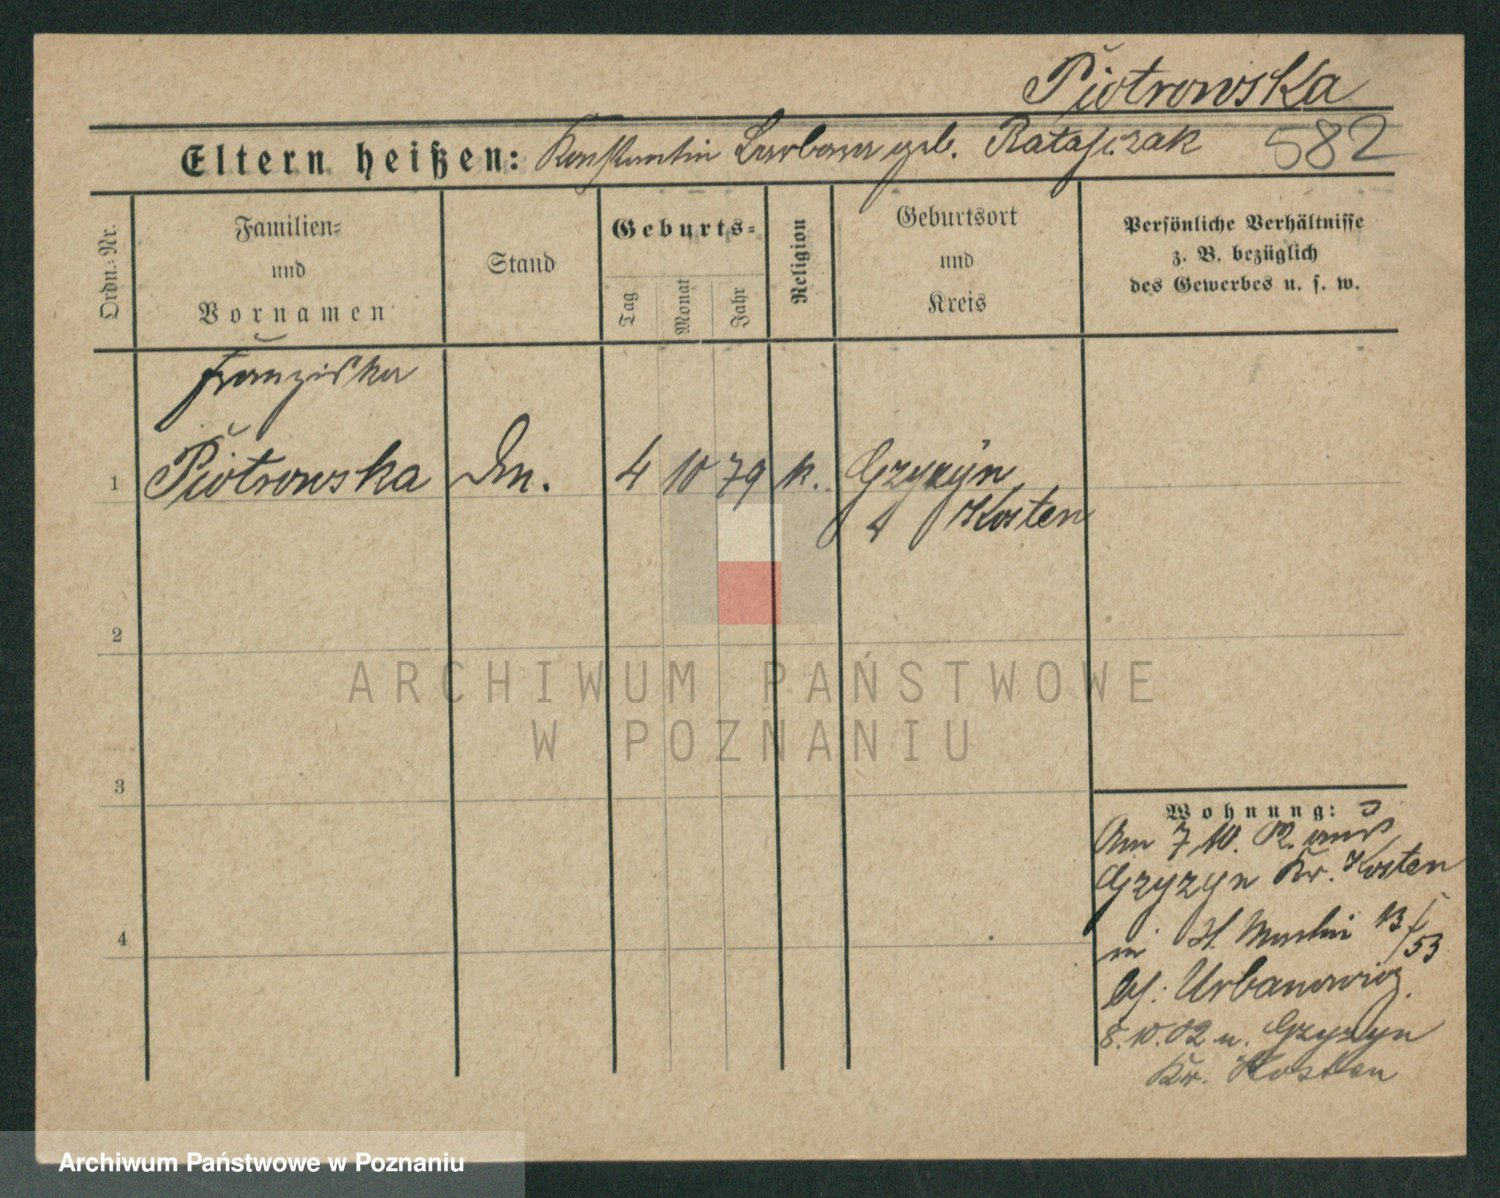 Piotrowska
Eltern heißen: Konstantin Barbara geb. Ratajczak 582
Ordn.-Nr.
Familien-
und
Vornamen
Stand
Geburts-
Tag
Monat
Jahr
Religion
Geburtsort
und
Kreis
Persönliche Verhältnisse
z. B. bezüglich
des Gewerbes u. s. w.
Franziska
1 Piotrowska Dm. 4 10 79 k. Gzyzyn
Kosten
2
ARCHIWUM PAŃSTWOWE
W POZNANIU
3
Wohnung:
Am 7 10. 02. aus
Gryzyn Kr. Kosten
in St. Martin 13/53
bs: Urbanowicz
8.10.02 n. Gryzyn
Kr. Kosten
4
Archiwum Państwowe w Poznaniu